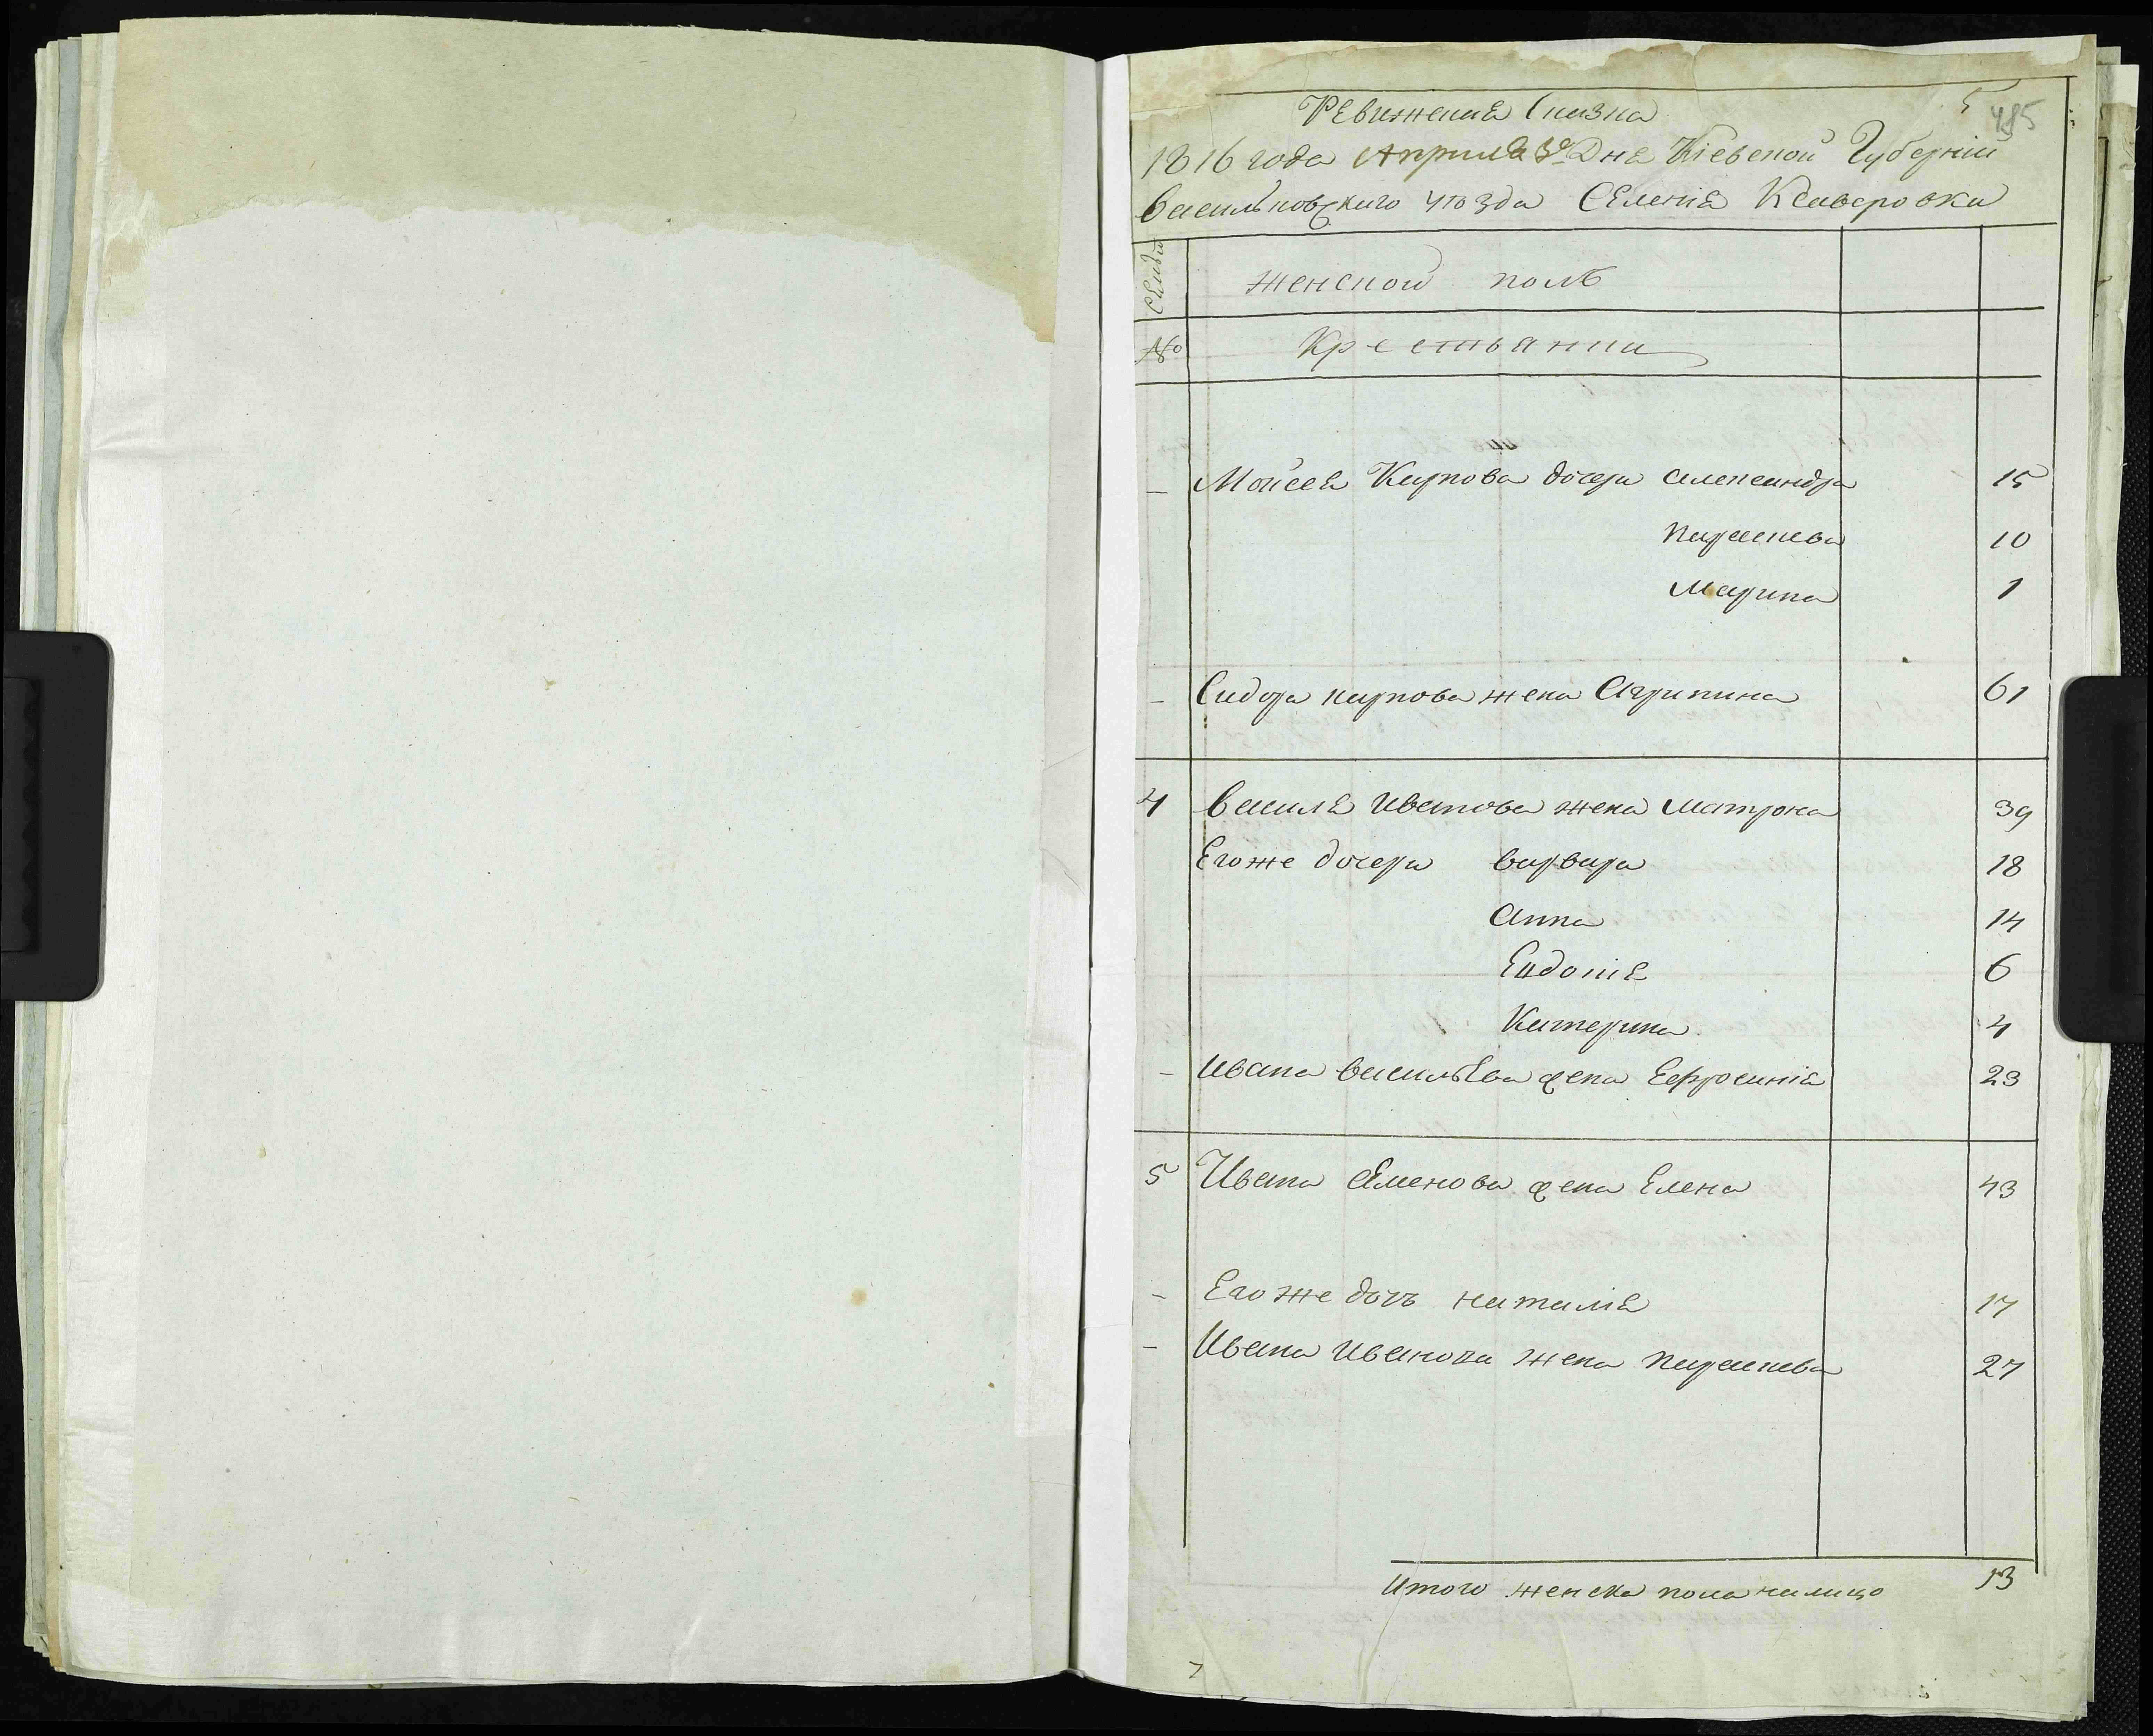 5
485
Ревижская Сказка
1816 года Апреля 30 Дня Кіевской Губерніи
Васильковского уѣзда Селенія Ксаверовки
Семьи
женской полъ
№ Крестьянки
– Моисея Карпова дочери александра 15
параскева 10
Марина 1
– Сидора карпова жена Агрипина 61
4 василя Иванова жена матрона 39
Егоже дочери варвара 18
Анна 14
Евдокія 6
Катерина 4
– Ивана васильева жена Ефросинія 23
5 Ивана Семенова жена Елена 43
– Егоже дочь наталія 17
– Ивана Иванова жена параскева 27
Итого женска пола налицо 13